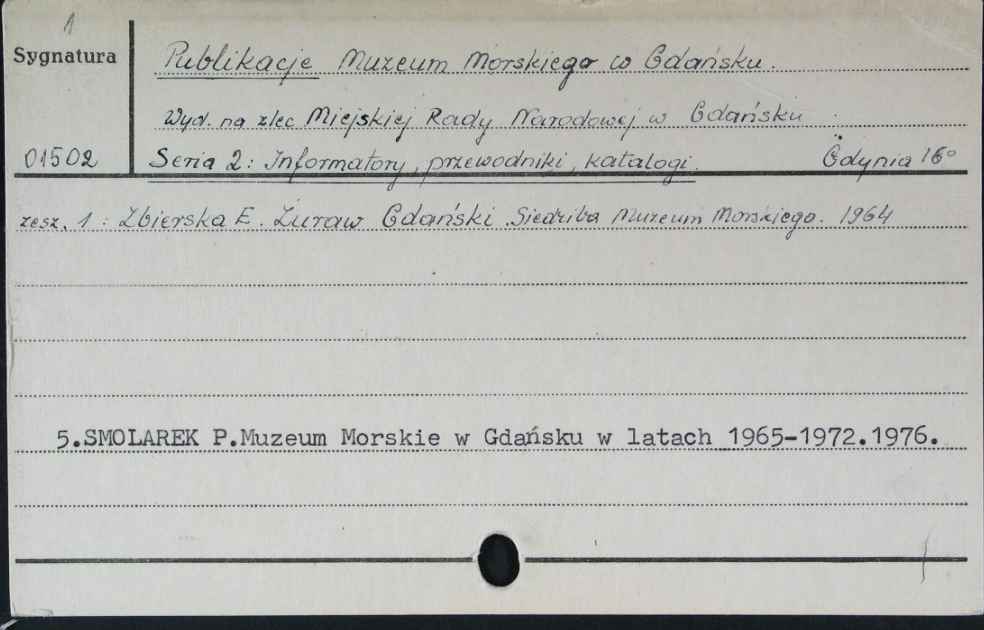 1
Sygnatura
Publikacje Muzeum Morskiego w Gdańsku.
Wyd. na zlec Miejskiej Rady Narodowej w Gdańsku
01502
Seria 2: Informatory, przewodniki, katalogi. Gdynia 16°
zesz. 1: Zbierska E. Żuraw Gdański Siedziba Muzeum Morskiego. 1964
5.SMOLAREK P.Muzeum Morskie w Gdańsku w latach 1965-1972.1976.